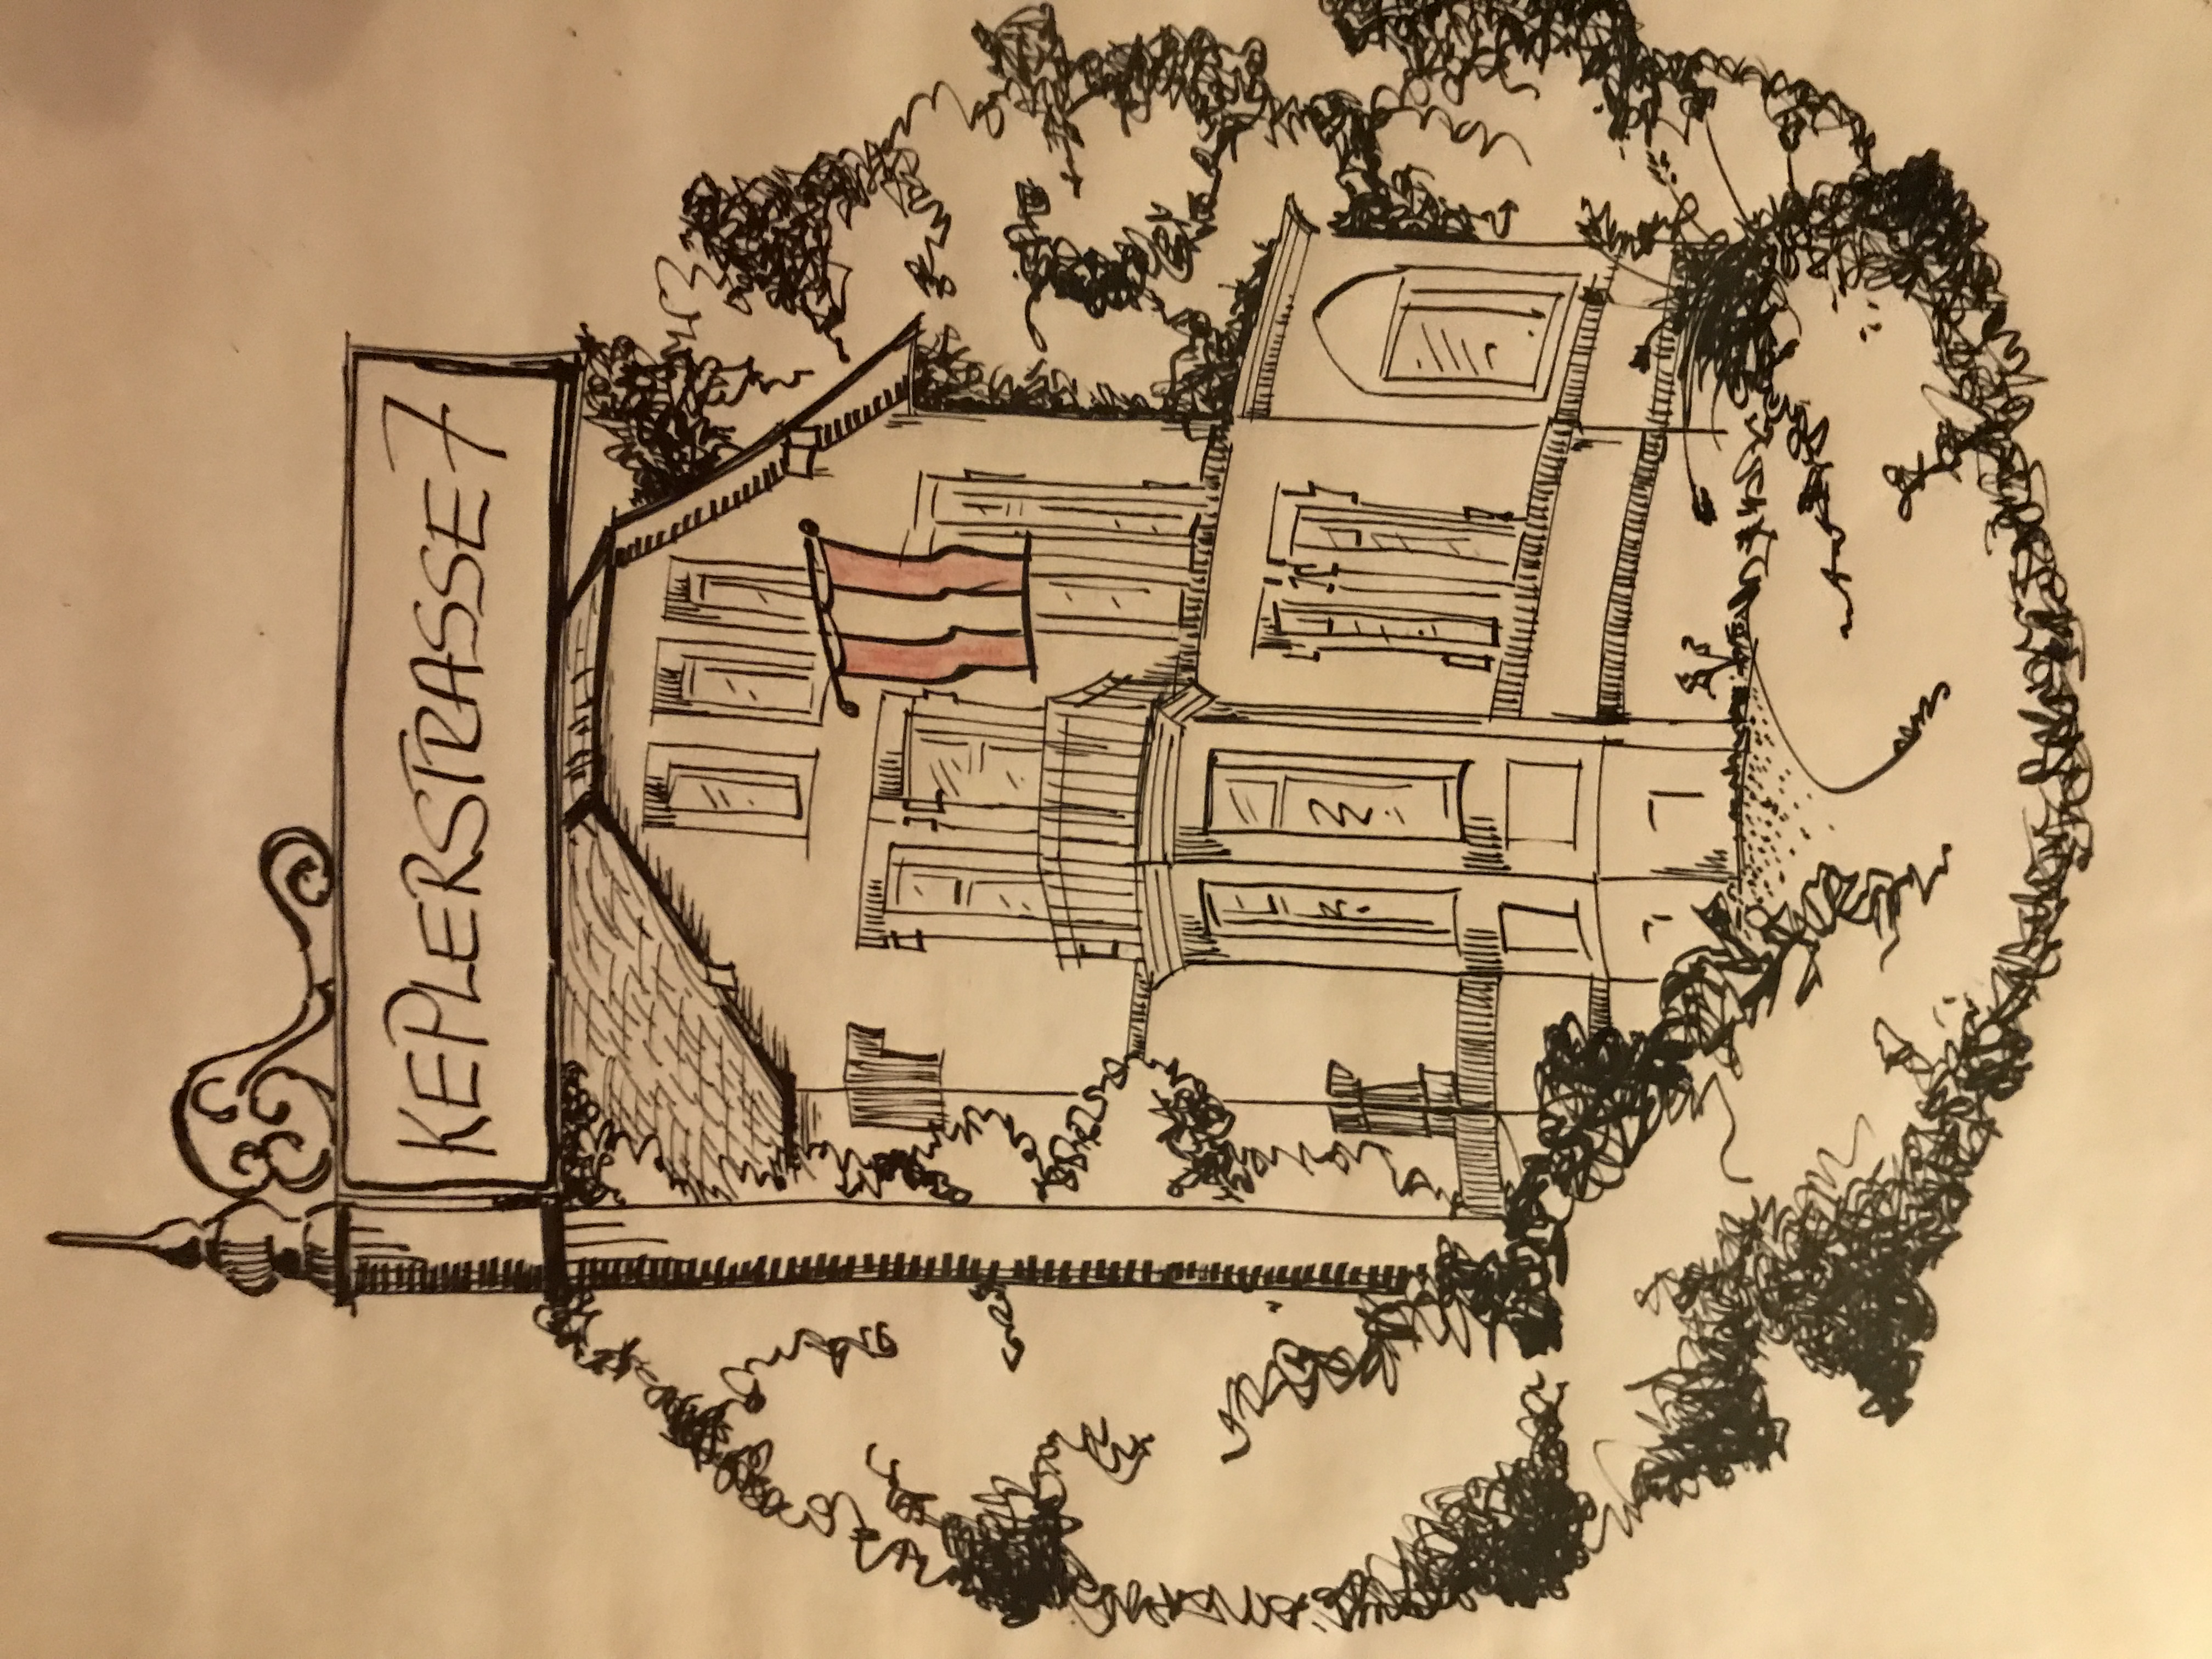 KEPLERSTRASSE 7